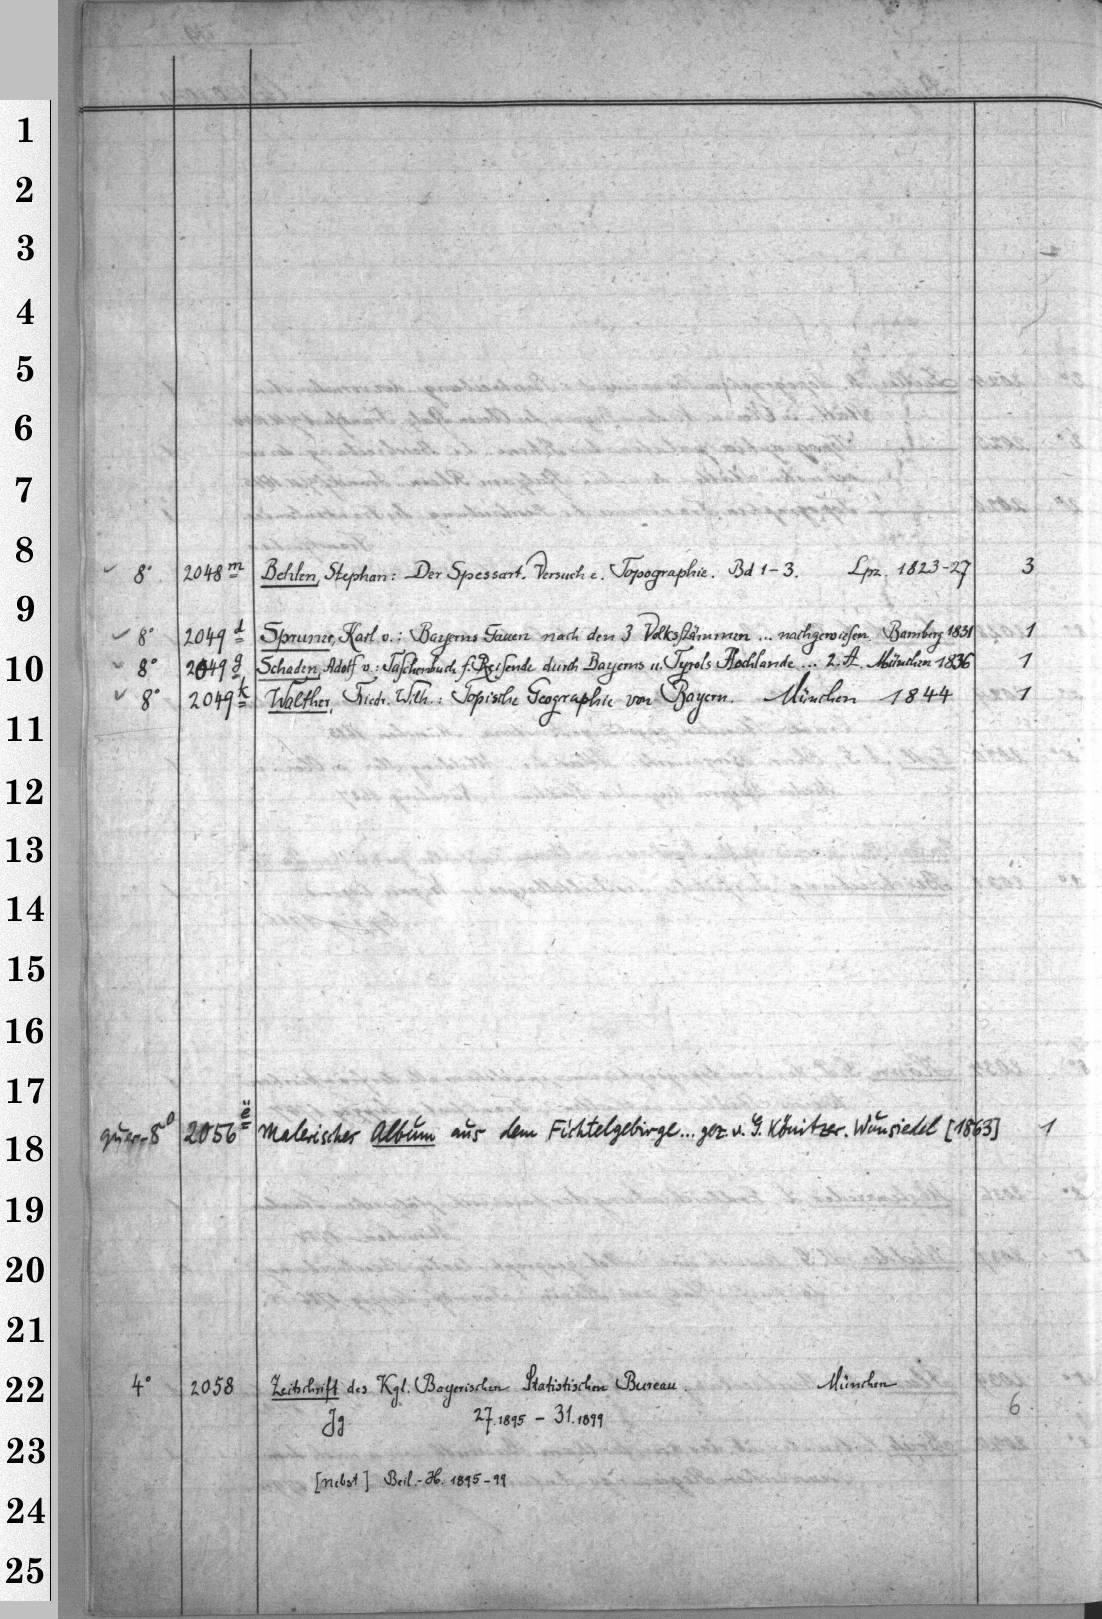 1
2
3
4
5
6
7
8
8° 2048 m Behlen, Stephan: Der Spessart. Versuch e. Topographie. Bd 1-3. Lpz. 1823-27 3
9
8° 2049 d Spruner, Karl v.: Bayerns Gauen nach den 3 Volksstämmen ... nachgewiesen. Bamberg 1831 1
10 8° 2049 g Schaden, Adolf v.: Taschenbuch f. Reisende durch Bayerns u. Tyrols Hochlande ... 2. A. München 1836 1
8° 2049 k Walther, Friedr. Wilh.: Topische Geographie von Bayern. München 1844 1
11
12
13
14
15
16
17
18 quer-8° 2056 e Malerisches Album aus dem Fichtelgebirge... gez. v. G. Könitzer. Wunsiedel [1863] 1
19
20
21
22 4° 2058 Zeitschrift des Kgl. Bayerischen Statistischen Bureau. München
Jg 27.1895 - 31.1899 6
23
[nebst] Beil.-H. 1895-99
24
25